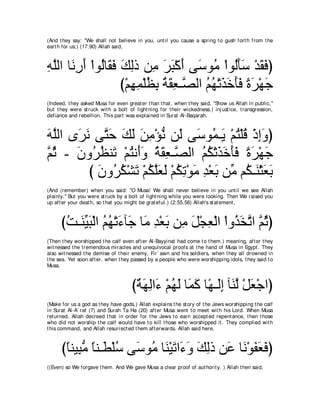 (And they say: "We shall not believe in you, until you cause a spring to gush forth from the
earth for us;) (17:90) Allah said,
(فَقَدْ سَأَلُواْ مُوسَى أَكْبَرَ مِن ذَلِكَ فَقَالُواْ أَرِنَا اللَّهِ
جَهْرَةً فَأَخَذَتْهُمُ الصَّـعِقَةُ بِظُلْمِهِمْ)
(Indeed, they asked Musa for even greater than that, when they said, "Show us Allah in public,"
but they were struck with a bolt of lightning for their wickedness,) injustice, transgression,
defiance and rebellion. This part was explained in Surat Al-Baqarah,
(وَإِذْ قُلْتُمْ يَـمُوسَى لَن نُّؤْمِنَ لَكَ حَتَّى نَرَى اللَّهَ
جَهْرَةً فَأَخَذَتْكُمُ الصَّـعِقَةُ وَأَنتُمْ تَنظُرُونَ - ثُمَّ
بَعَثْنَـكُم مِّن بَعْدِ مَوْتِكُمْ لَعَلَّكُمْ تَشْكُرُونَ )
(And (remember) when you said: "O Musa! We shall never believe in you until we see Allah
plainly." But you were struck by a bolt of lightning while you were looking. Then We raised you
up after your death, so that you might be grateful.) (2:55,56) Allah's statement,
(ثُمَّ اتَّخَذُواْ الْعِجْلَ مِن بَعْدِ مَا جَآءَتْهُمُ الْبَيِّنَـتُ)
(Then they worshipped the calf even after Al-Bayyinat had come to them.) meaning, after they
witnessed the tremendous miracles and unequivocal proofs at the hand of Musa in Egypt. They
also witnessed the demise of their enemy, Fir`awn and his soldiers, when they all drowned in
the sea. Yet soon after, when they passed by a people who were worshipping idols, they said to
Musa,
(اجْعَلْ لَّنَآ إِلَـهًا كَمَا لَهُمْ ءَالِهَةٌ)
(Make for us a god as they have gods.) Allah explains the story of the Jews worshipping the calf
in Surat Al-A`raf (7) and Surah Ta Ha (20) after Musa went to meet with his Lord. When Musa
returned, Allah decreed that in order for the Jews to earn accepted repentance, then those
who did not worship the calf would have to kill those who worshipped it. They complied with
this command, and Allah resurrected them afterwards. Allah said here,
(فَعَفَوْنَا عَن ذَلِكَ وَءَاتَيْنَا مُوسَى سُلْطَـناً مُّبِيناً)
((Even) so We forgave them. And We gave Musa a clear proof of authority. ) Allah then said,